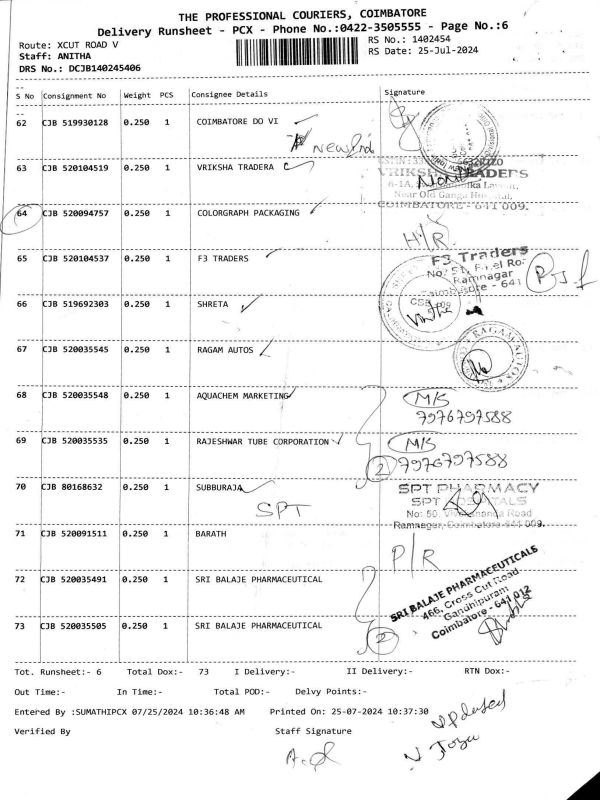 THE PROFESSIONAL COURIERS, COIMBATORE
Delivery Runsheet - PCX - Phone No.:0422-3505555 - Page No.:6
Route: XCUT ROAD V
RS No.: 1402454
Staff: ANITHA
RS Date: 25-Jul-2024
DRS No.: DCJB140245406
S No Consignment No Weight PCS Consignee Details Signature
62 CJB 519930128 0.250 1 COIMBATORE DO VI
63 CJB 520104519 0.250 1 VRIKSHA TRADERA
VRIKSHA TRADERS
Near Old Ganga Hospital,
COIMBATORE - 641 009.
64 CJB 520094757 0.250 1 COLORGRAPH PACKAGING
H/R
65 CJB 520104537 0.250 1 F3 TRADERS
F3 Traders
Ramnagar
Coimbatore - 641
66 CJB 519692303 0.250 1 SHRETA
67 CJB 520035545 0.250 1 RAGAM AUTOS
RAGAM AUTOS
68 CJB 520035548 0.250 1 AQUACHEM MARKETING
M/S
7976797588
69 CJB 520035535 0.250 1 RAJESHWAR TUBE CORPORATION
M/S
2 7976797588
70 CJB 80168632 0.250 1 SUBBURAJA
SPT
SPT PHARMACY
SPT
No: 50, Vivekananda Road
Ramnagar, Coimbatore-641 009.
71 CJB 520091511 0.250 1 BARATH
P/R
72 CJB 520035491 0.250 1 SRI BALAJE PHARMACEUTICAL
SRI BALAJE PHARMACEUTICALS
466, Cross Cut Road
Gandhipuram
Coimbatore - 641 012
73 CJB 520035505 0.250 1 SRI BALAJE PHARMACEUTICAL
2
Tot. Runsheet:- 6 Total Dox:- 73 I Delivery:- II Delivery:- RTN Dox:-
Out Time:- In Time:- Total POD:- Delvy Points:-
Entered By :SUMATHIPCX 07/25/2024 10:36:48 AM Printed On: 25-07-2024 10:37:30
Verified By Staff Signature
updated